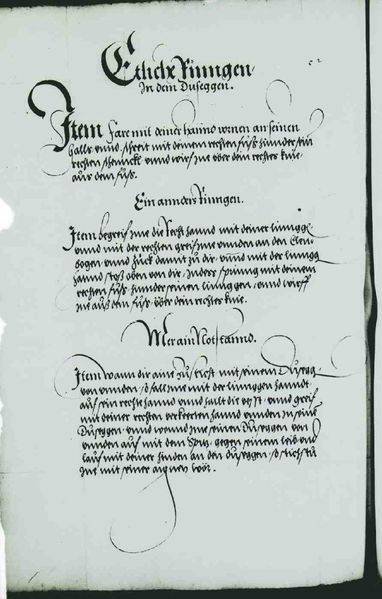 Etliche Ringen
In dem Duseggen.
Item Fare mit deiner hannd vornen an seinen
halls vnnd schreit mit deinem rechten fůß hinder sein
rechten schennckl vnnd wirf ine vber dein rechtes knie
aus dem fůß.
Ein annders Ringen.
Item begreif ime die recht hannd mit deiner linngge
vnnd mit der rechten greif ime vnnden an den Elen-
bogen vnd zuck damit zu dir vnnd mit der lingg
hannd stoß oben von dir, Indes spring mit deinem
rechten fůß hinder seinen linnggen vnnd wirff
ine aus dem fůß vber dein rechtes knie.
Mer ain Notstannd.
Item wann dir ainer zusticht mit seinem Dusegg
von vnnden so fall ime mit der linnggen hanndt
auf sein rechte hannd vnnd halt die vest vnnd greif
mit deiner rechten verkerten hannd vnnden in seine
Duseggen vnnd wennd ime seinen Duseggen von
vnnden auf mit dem Spitz gegen seinem leib vnd
lauf mit deiner hinden an den duseggen so stichstu
ine mit seiner aignen wör.